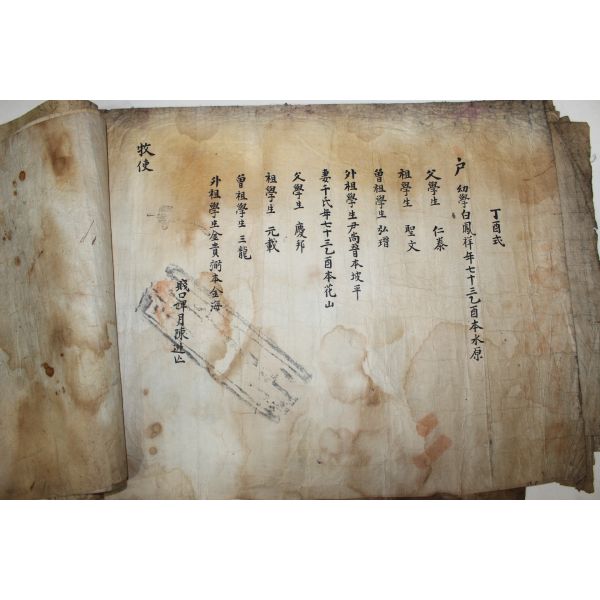 丁酉式
户 幼學白鳳祥年七十三乙酉本水原
父學生 仁泰
祖學生 聖文
曾祖學生 弘璔
外祖學生尹尚晉本坡平
妻千氏年七十三乙酉本花山
父學生 慶邦
祖學生 元載
曾祖學生 三龍
外祖學生金貴弼本金海
口婢月陳逃亡
牧使